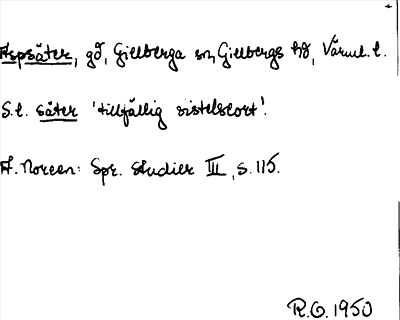 Aspsäter, gd, Gillberga sn, Gillbergs hd, Värml. l.
S.l. säter 'tillfällig vistelseort'.
A. Noreen: Spr. studier III, s. 115.
R.O. 1950